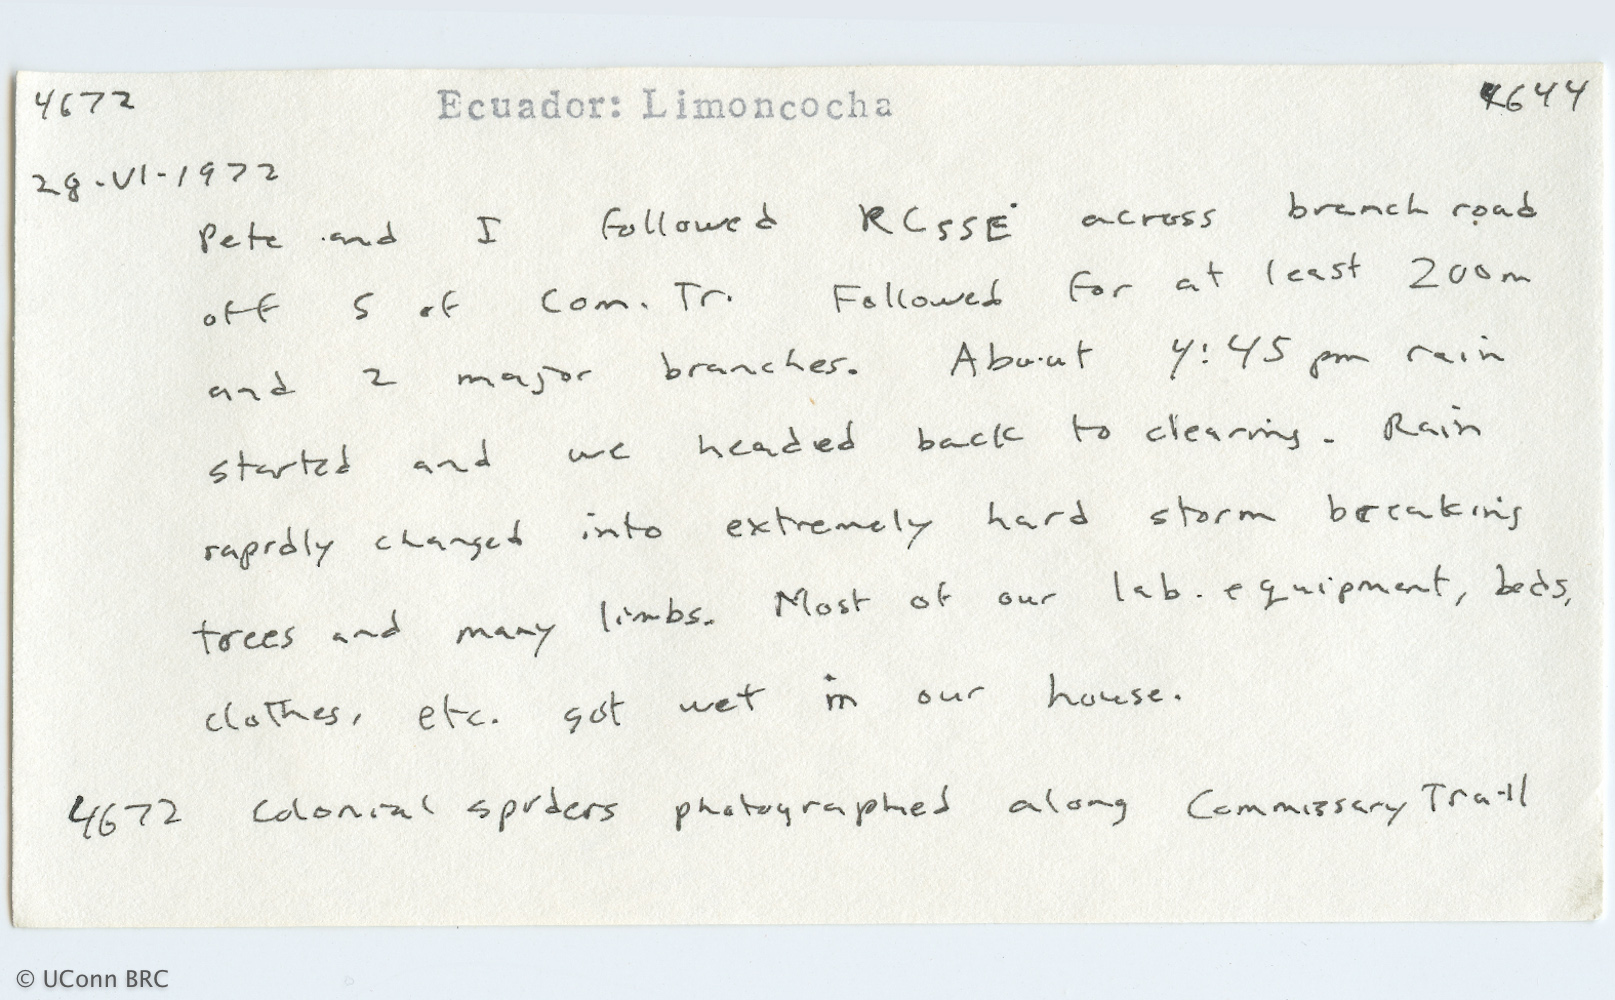 4672 Ecuador: Limoncocha 4644
28-VI-1972
Pete and I followed RCSSE across branch road
off S of Com. Tr. Followed for at least 200m
and 2 major branches. About 4:45 pm rain
started and we headed back to clearing. Rain
rapidly changed into extremely hard storm breaking
trees and many limbs. Most of our lab. equipment, beds,
clothes, etc. got wet in our house.
4672 Colonial spiders photographed along Commissary Trail
© UConn BRC